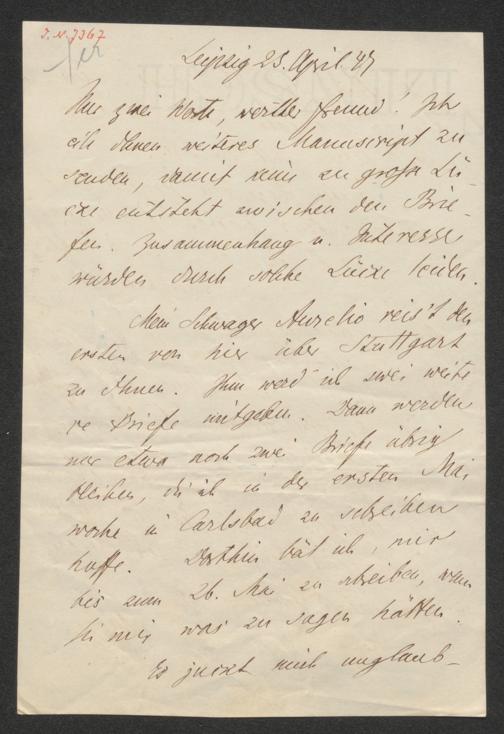 J. N. 7367
Leipzig 25. April 47
Nur zwei Worte, werther Freund! Ich
eile Ihnen weiteres Manuscript zu
senden, damit keine zu große Lü-
cke entsteht zwischen den Brie-
fen. Zusammenhang u. Interesse
würden durch solche Lücke leiden.
Mein Schwager Aurelio reis't den
ersten von hier über Stuttgart
zu Ihnen. Ihm werd' ich zwei weite
re Briefe mitgeben. Dann werden
nur etwa noch zwei Briefe übrig
bleiben, die ich in der ersten Mai
woche in Carlsbad zu schreiben
hoffe. Dorthin bät ich, mir
bis zum 26. Mai zu schreiben, wenn
Sie mir was zu sagen hätten.
Es juckt mich unglaub-